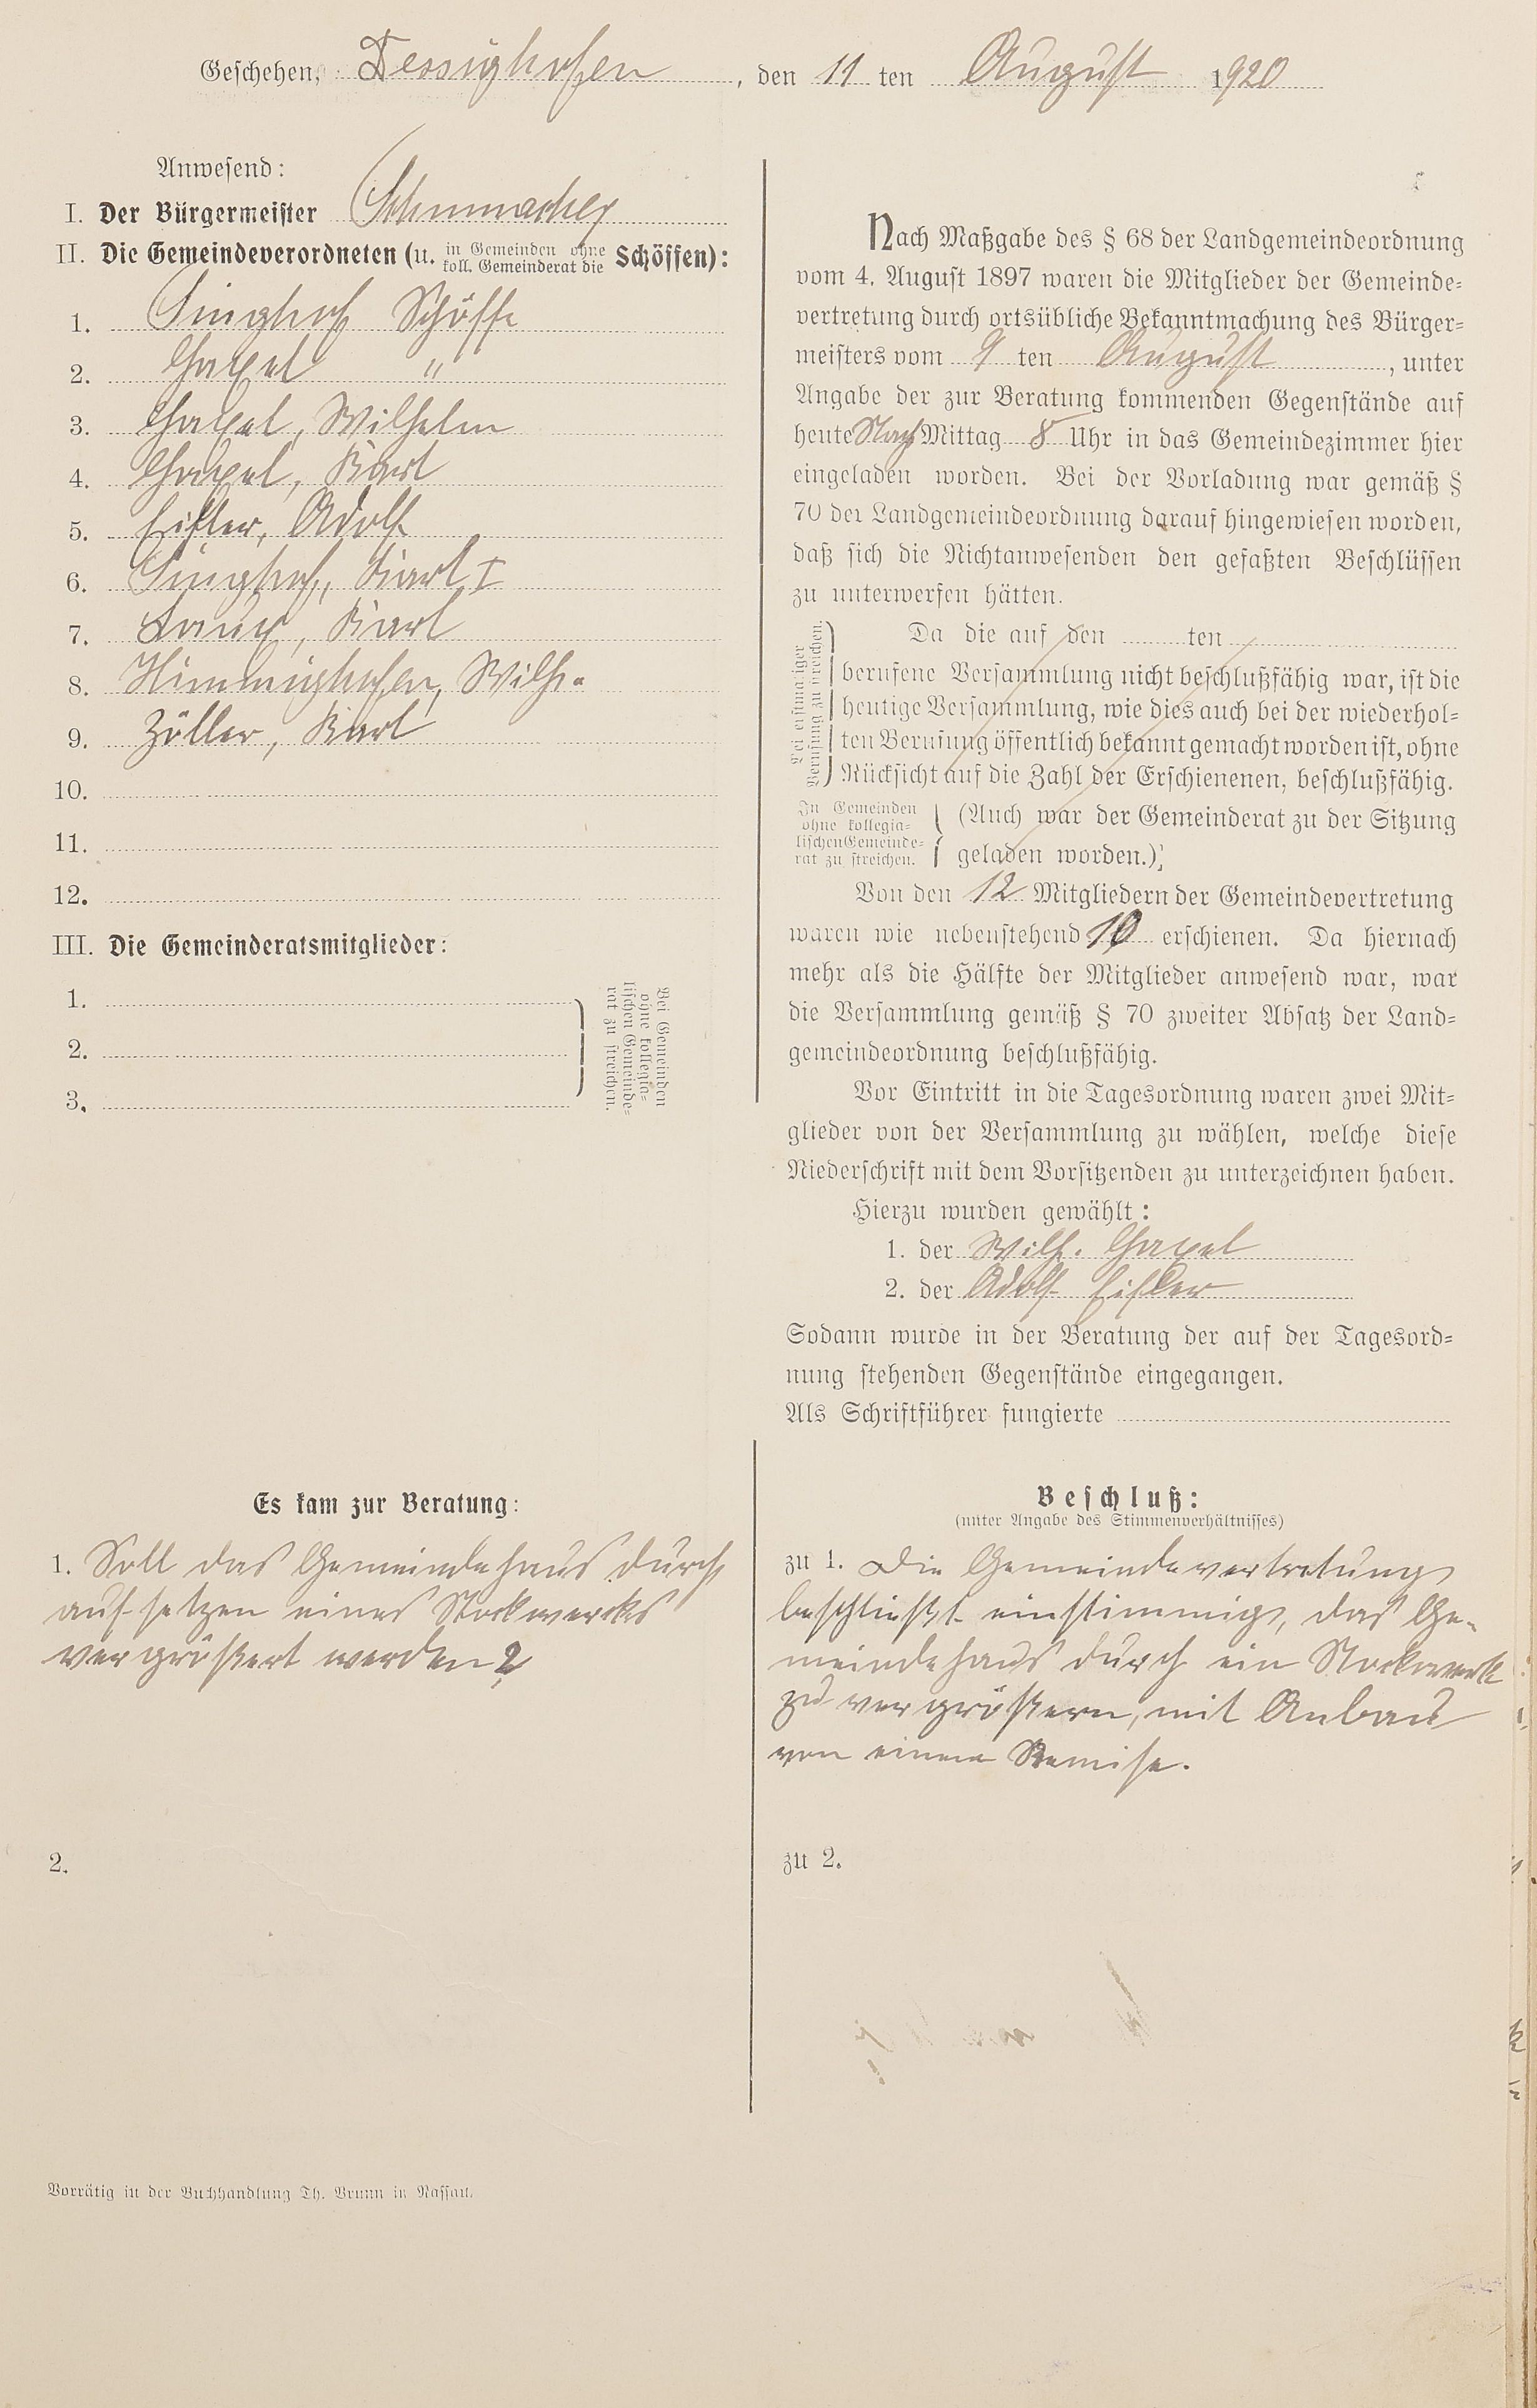 Geschehen, Dessighofen, den 11 ten August 1920
Anwesend:
I. Der Bürgermeister Schumacher
II. Die Gemeindeverordneten (u. in Gemeinden ohne koll. Gemeinderat die Schöffen):
1. Singhof Schöffe
2. "
3. Wilhelm
4. Karl
5. Adolf
6. Singhof, Karl I
7. Karl
8. Himmighofen, Wilh.
9. Zöller, Karl
10.
11.
12.
III. Die Gemeinderatsmitglieder:
1.
2.
3.
Bei Gemeinden
ohne kollegia-
lischen Gemeinde-
rat zu streichen.
Nach Maßgabe des § 68 der Landgemeindeordnung
vom 4. August 1897 waren die Mitglieder der Gemeinde-
vertretung durch ortsübliche Bekanntmachung des Bürger-
meisters vom 9 ten August, unter
Angabe der zur Beratung kommenden Gegenstände auf
heute Nach Mittag 8 Uhr in das Gemeindezimmer hier
eingeladen worden. Bei der Vorladung war gemäß §
70 der Landgemeindeordnung darauf hingewiesen worden,
daß sich die Nichtanwesenden den gefaßten Beschlüssen
zu unterwerfen hätten.
Bei erstmaliger
Berufung zu streichen.
Da die auf den ten
berufene Versammlung nicht beschlußfähig war, ist die
heutige Versammlung, wie dies auch bei der wiederhol-
ten Berufung öffentlich bekannt gemacht worden ist, ohne
Rücksicht auf die Zahl der Erschienenen, beschlußfähig.
In Gemeinden
ohne kollegia-
lischen Gemeinde-
rat zu streichen.
(Auch war der Gemeinderat zu der Sitzung
geladen worden.)
Von den 12 Mitgliedern der Gemeindevertretung
waren wie nebenstehend 10 erschienen. Da hiernach
mehr als die Hälfte der Mitglieder anwesend war, war
die Versammlung gemäß § 70 zweiter Absatz der Land-
gemeindeordnung beschlußfähig.
Vor Eintritt in die Tagesordnung waren zwei Mit-
glieder von der Versammlung zu wählen, welche diese
Niederschrift mit dem Vorsitzenden zu unterzeichnen haben.
Hierzu wurden gewählt:
1. der Wilh.
2. der Adolf
Sodann wurde in der Beratung der auf der Tagesord-
nung stehenden Gegenstände eingegangen.
Als Schriftführer fungierte
Es kam zur Beratung:
1. Soll das Gemeindehaus durch
aufsetzen eines Stockwercks
vergrößert werden?
2.
Beschluß:
(unter Angabe des Stimmenverhältnisses)
zu 1. Die Gemeindevertretung
beschließt einstimmig, das Ge-
meindehaus durch ein Stockwerk
zu vergrößern, mit Anbau
von einem Remise.
zu 2.
Vorrätig in der Buchhandlung Th. Brunn in Nassau.